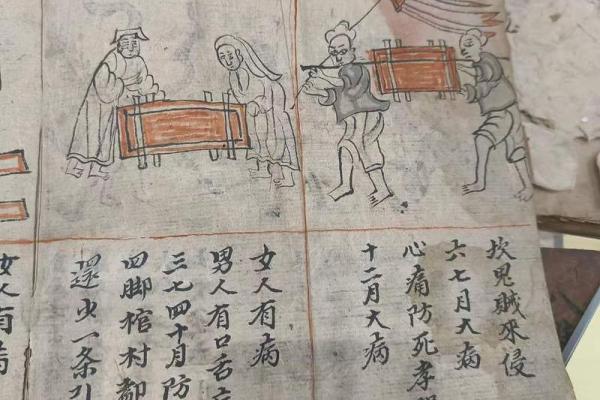 坎鬼賊來侵
六七月大病
心痛防死孝
十二月大病
女人有病
男人有口舌
三七四十月防
四脚棺村都
還出一条引
女人有病